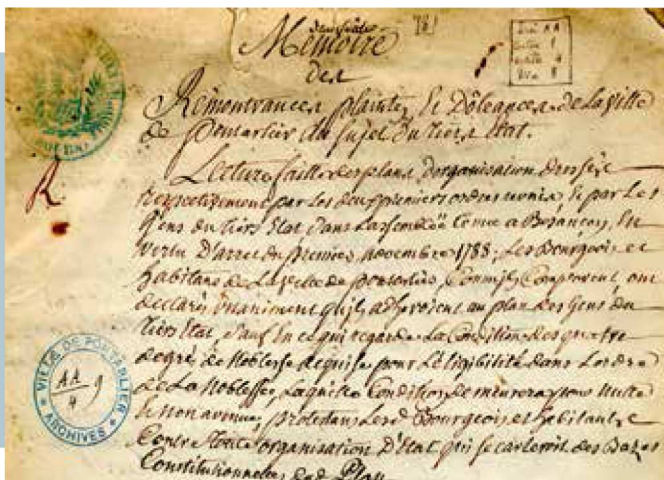 Mémoire
des
Remontrances plaintes Et Dôleances de la ville
de pontarlier au sujet du tiers État.
Lecture faitte des plans d'organisation dressés
respectivement par les deux premiers ordres reunis, Et par Les
Gens du tiers État dans L'assemblée tenue a Besançon, En
vertu D'arret du premier novembre 1788, Les Bourgeois et
habitans de La ville de pontarlier, Commis Comparent, ont
declarés unaniment qu'ils adheroient au plan des Gens du
tiers État, Sauf En ce qui regarde La Condition des quatre
degré de Noblesse requise pour L'éligibilité dans L'ordre
de La Noblesse, Laquelle Condition demeurera pour nulle
Et non avenue, protestans Lesd Bourgeois et habitans
Contre toute organisation D'État qui s'écarteroit des Bazes
Constitutionnelles dud Plan
VILLE DE PONTARLIER
ARCHIVES
AA
4
9
R.